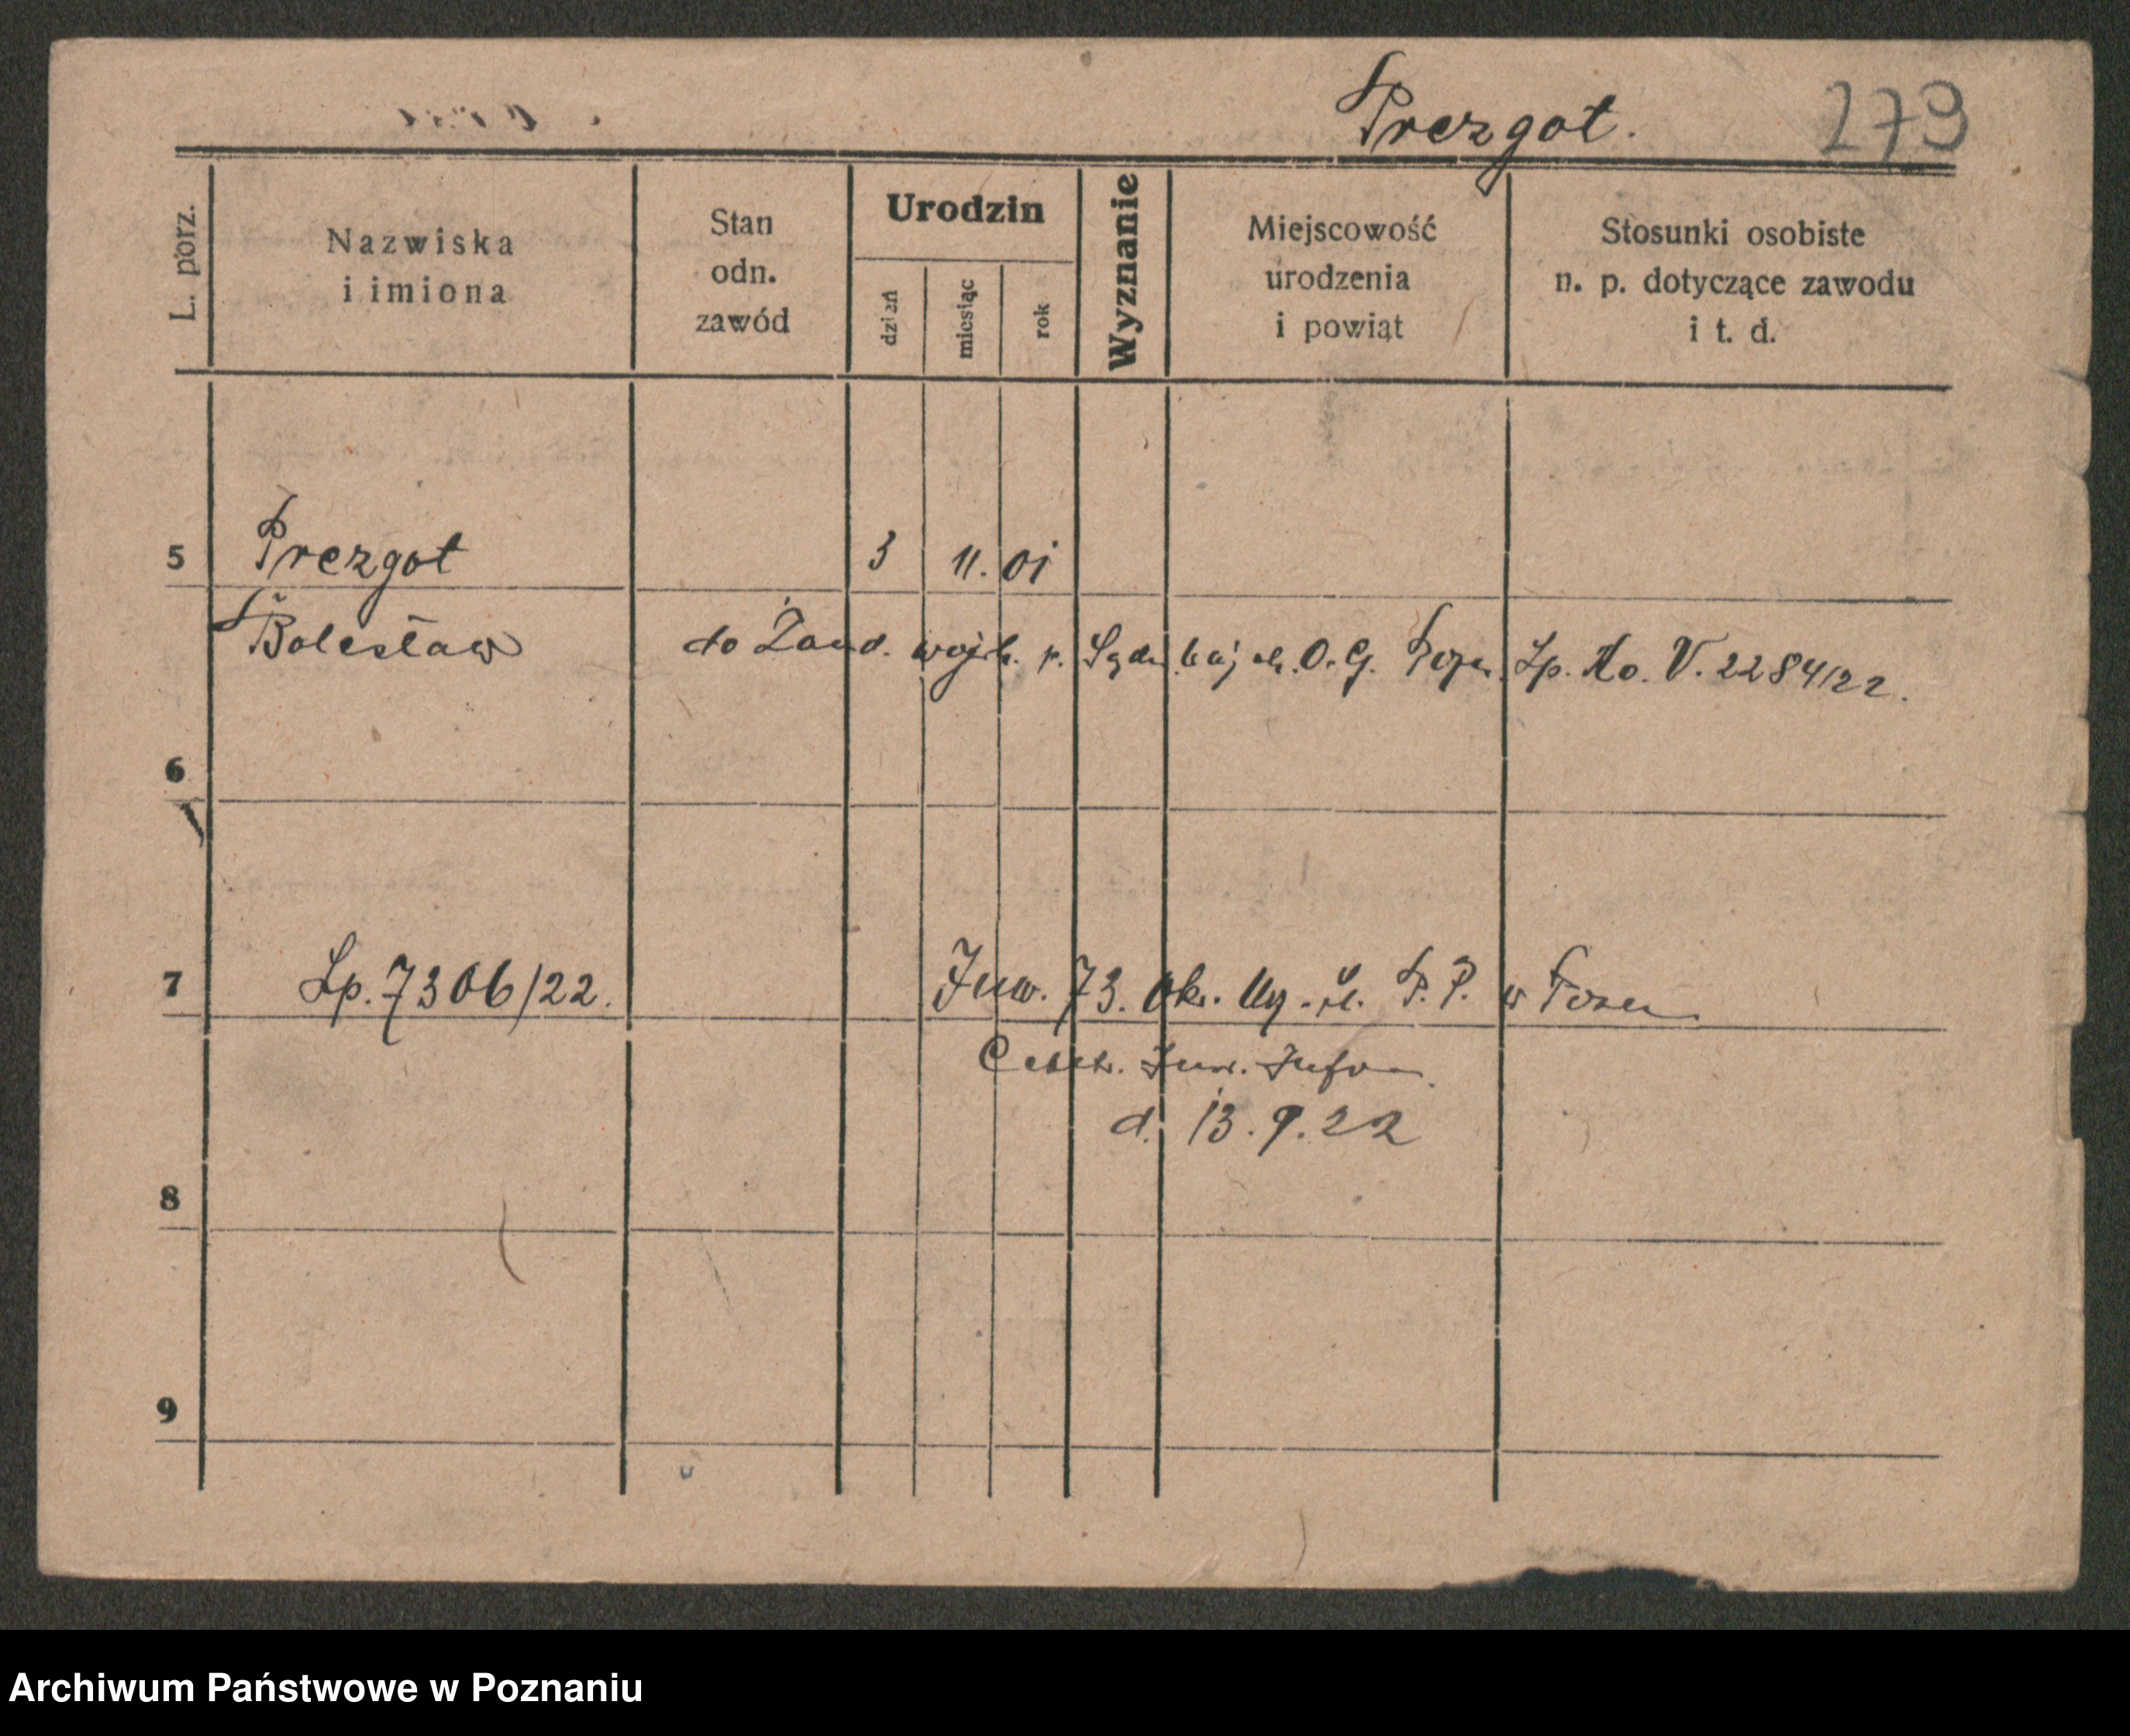 Prezgot. 279
L. porz.
Nazwiska
i imiona
Stan
odn.
zawód
Urodzin
dzień
miesiąc
rok
Wyznanie
Miejscowość
urodzenia
i powiąt
Stosunki osobiste
n. p. dotyczące zawodu
i t. d.
5 Prezgot 3 11. 01
Bolesław do Żand. wojsk. p. Sądu O. G. Pozn. Lp. Ko. V. 2284/22.
6
7 Lp. 7306/22. Inw. 73. Okr. P. P. w Pozn
Inw. Inform.
d. 13. 9. 22
8
9
Archiwum Państwowe w Poznaniu